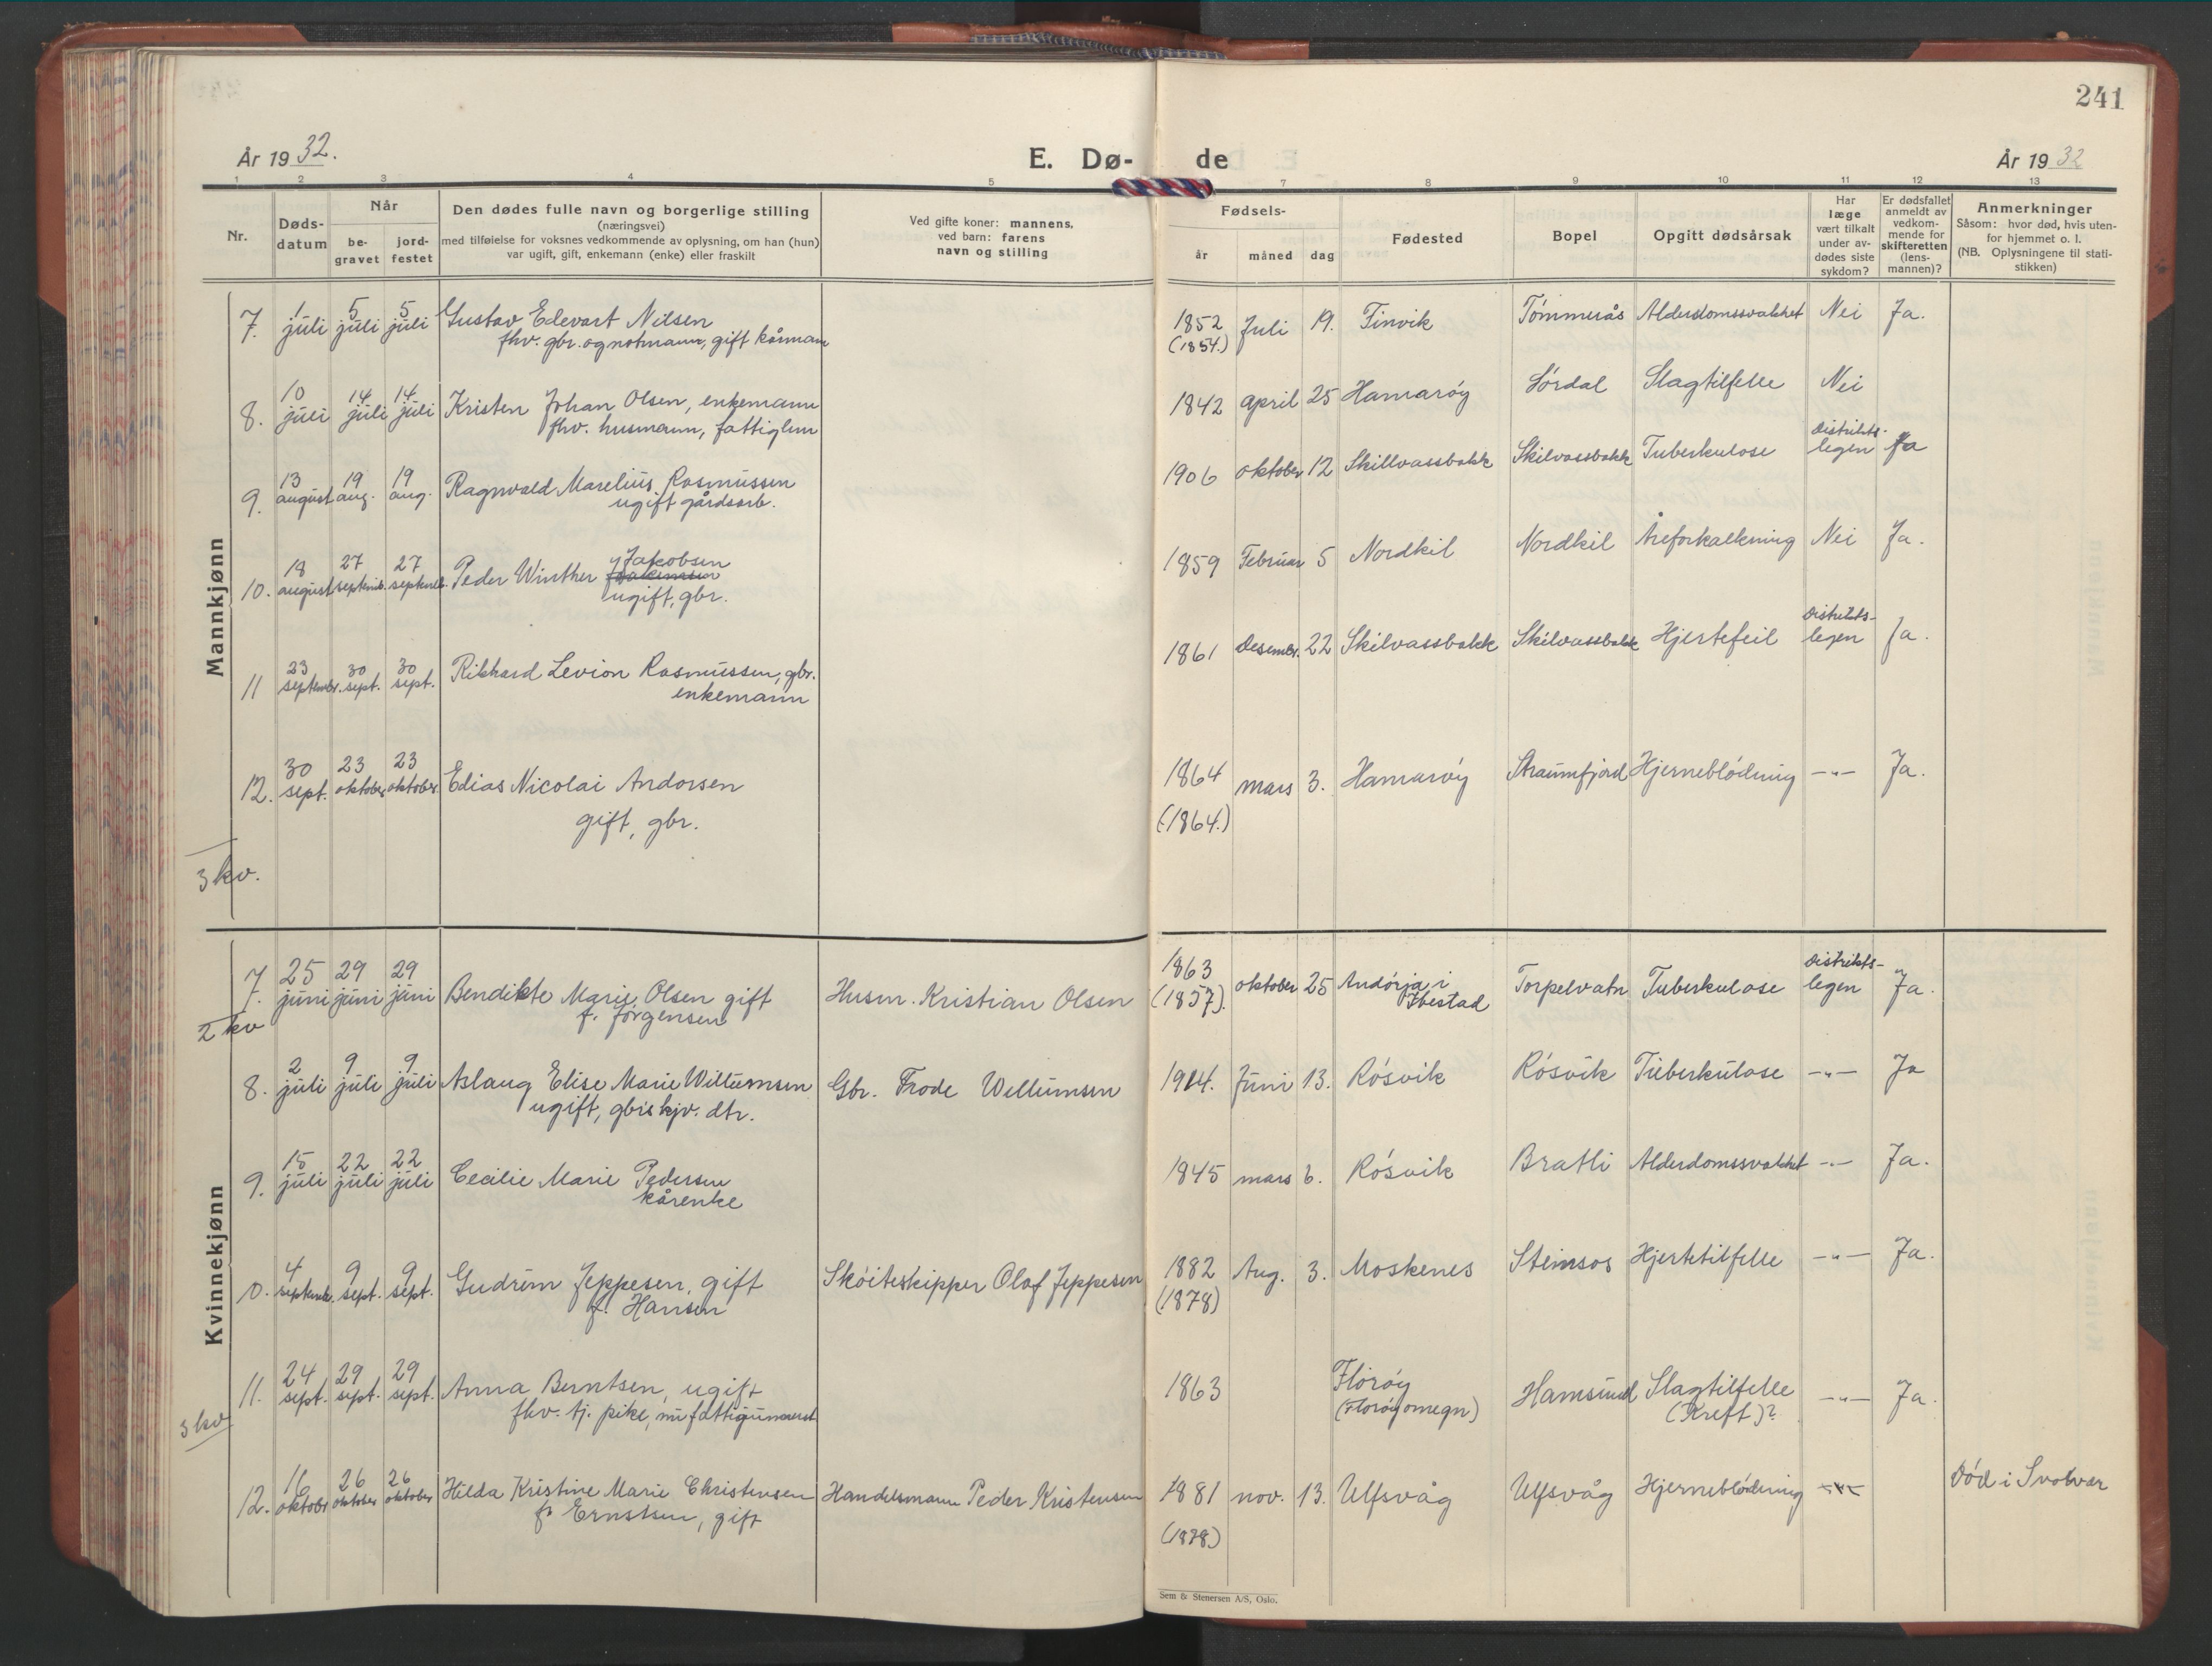 241
År 1932.
E. Dø- de
År 1932
1 2 3 4 5 7 8 9 10 11 12 13
Nr.
Døds-
datum
Når
be-
gravet
jord-
festet
Den dødes fulle navn og borgerlige stilling
(næringsvei)
med tilføielse for voksnes vedkommende av oplysning, om han (hun)
var ugift, gift, enkemann (enke) eller fraskilt
Ved gifte koner: mannens,
ved barn: farens
navn og stilling
Fødsels-
år måned dag
Fødested
Bopel
Opgitt dødsårsak
Har
læge
vært tilkalt
under av-
dødes siste
sykdom?
Er dødsfallet
anmeldt av
vedkom-
mende for
skifteretten
(lens-
mannen)?
Anmerkninger
Såsom: hvor død, hvis uten-
for hjemmet o. l.
(NB. Oplysningene til stati-
stikken)
Mannkjønn
7. 1 juli 5 juli 5 juli Gustav Edevart Nilsen 1852 Juli 19. Finvik Tómmerås Alderdomssvakhet Nei Ja.
fhv. gbr. og notmann, gift kårmann (1854.)
8. 10 juli 14 juli 14 juli Kristen Johan Olsen, enkemann 1842 april 25 Hamaróy Sórdal Slagtilfelle Nei
fhv. husmann, fattiglem
9. 13 august 19 aug. 19 aug. Ragnvald Marelius Rasmussen 1906 oktober 12 Skillvassbakk Skilvassbakk Tuberkulose Distrikts-legen Ja
ugift gårdsarb.
10. 18 august 27 septemb. 27 septemb. Peder Winther Jakobsen 1859 Februar 5 Nordkil Nordkil Åreforkalkning Nei Ja.
ugift, gbr.
11 23 septembr. 30 sept. 30 sept. Rikhard Levion Rasmussen, gbr. 1861 Desembr. 22 Skilvassbakk Skilvassbakk Hjertefeil Distrikts-legen Ja.
enkemann
12. 30 sept. 23 oktober 23 oktober Edias Nicolai Andorsen 1864 mars 3. Hamaróy Straumfjord Hjerneblódning -"- Ja.
gift, gbr. (1864.)
3 kv.
Kvinnekjønn
7. 25 juni 29 juni 29 juni Bendikte Marie Olsen gift Husm. Kristian Olsen 1863 oktober 25 Andórja i Torpelvatn Tuberkulose Distrikts-legen Ja.
f. Jorgensen (1857). Ibestad
2 kv
8. 2 juli 9 juli 9 juli Aslaug Elise Marie Willumsen Gbr. Frode Willumsen 1914. Juni 13. Rósvik Rósvik Tuberkulose -"- Ja
ugift, gbrs hjv. dtr.
9. 15 juli 22 juli 22 juli Cecilie Marie Pedersen 1845 mars 6. Rósvik Bratli Alderdomssvakhet -"- Ja.
kårenke
10. 4 septemb. 9 sept. 9 sept. Gudrun Jeppesen, gift Skóiteskipper Olaf Jeppesen 1882 Aug. 3. Moskenes Steinsos Hjertetilfelle -"- Ja.
f. Hansen (1878)
11. 24 sept. 29 sept. 29 sept. Anna Berntsen, ugift 1863 Floróy Hamsund Slagtilfelle -"- Ja.
fhv. tj. pike, nu fattigunderst (Floróy omegn) (Kreft)?
3 kv
12. 16 oktober 26 oktober 26 oktober Hilda Kristine Marie Christensen Handelsmann Peder Kristensen 1881 nov. 13. Ulfsvåg Ulfsvåg Hjerneblódning Dód i Svolvær
f. Ernstsen, gift (1878.)
Sem & Stenersen A/S, Oslo.